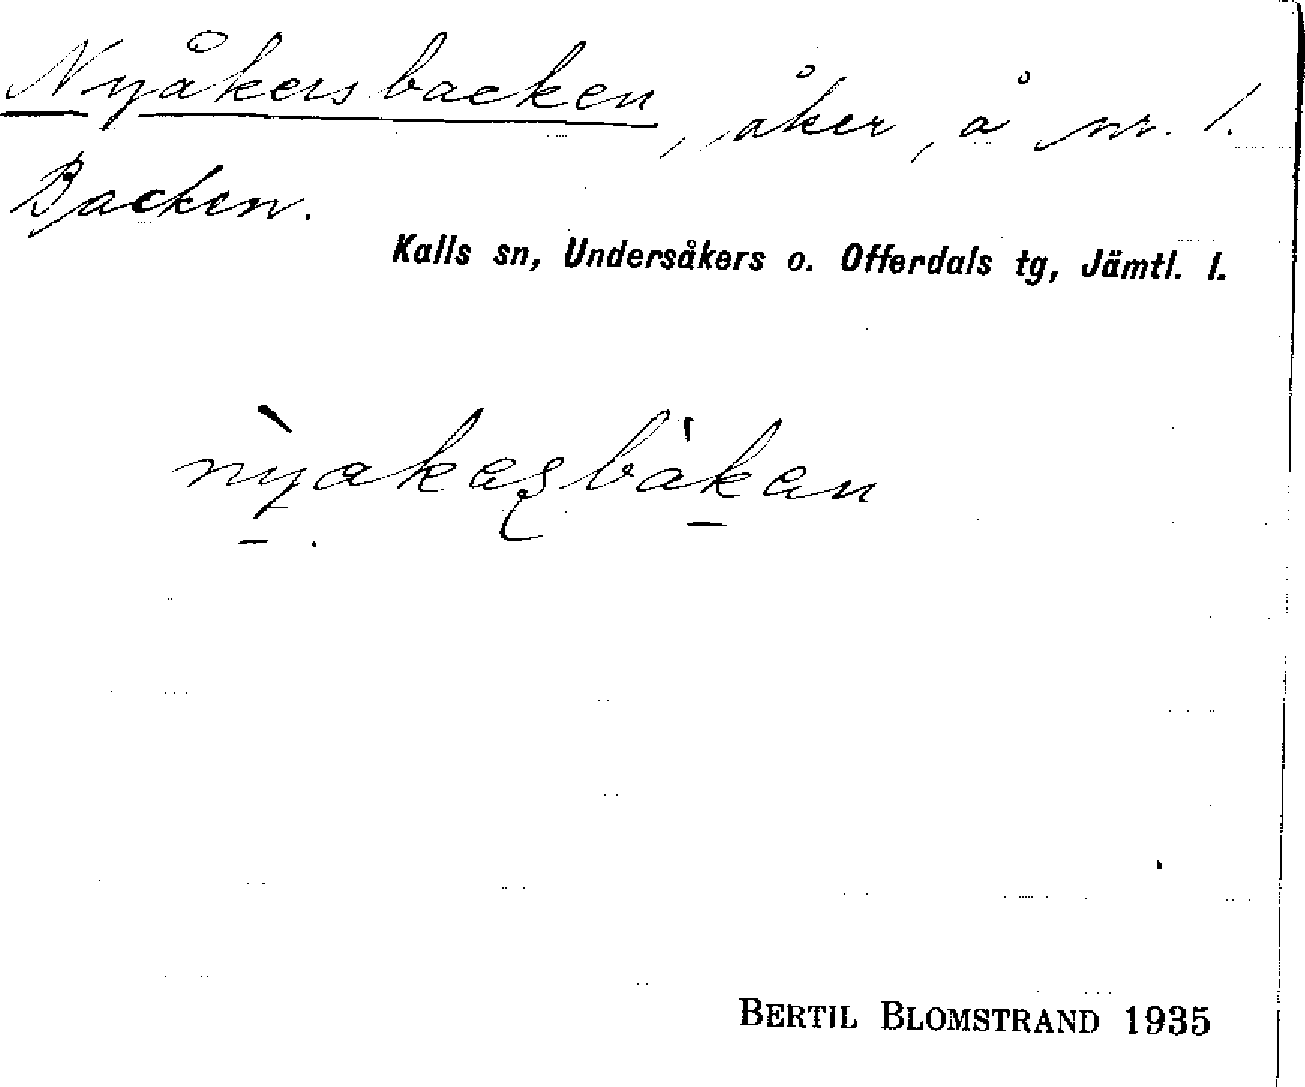 Nyåkersbacken, åker, å nr. 1.
Backen.
Kalls sn, Undersåkers o. Offerdals tg, Jämtl. l.
BERTIL BLOMSTRAND 1935